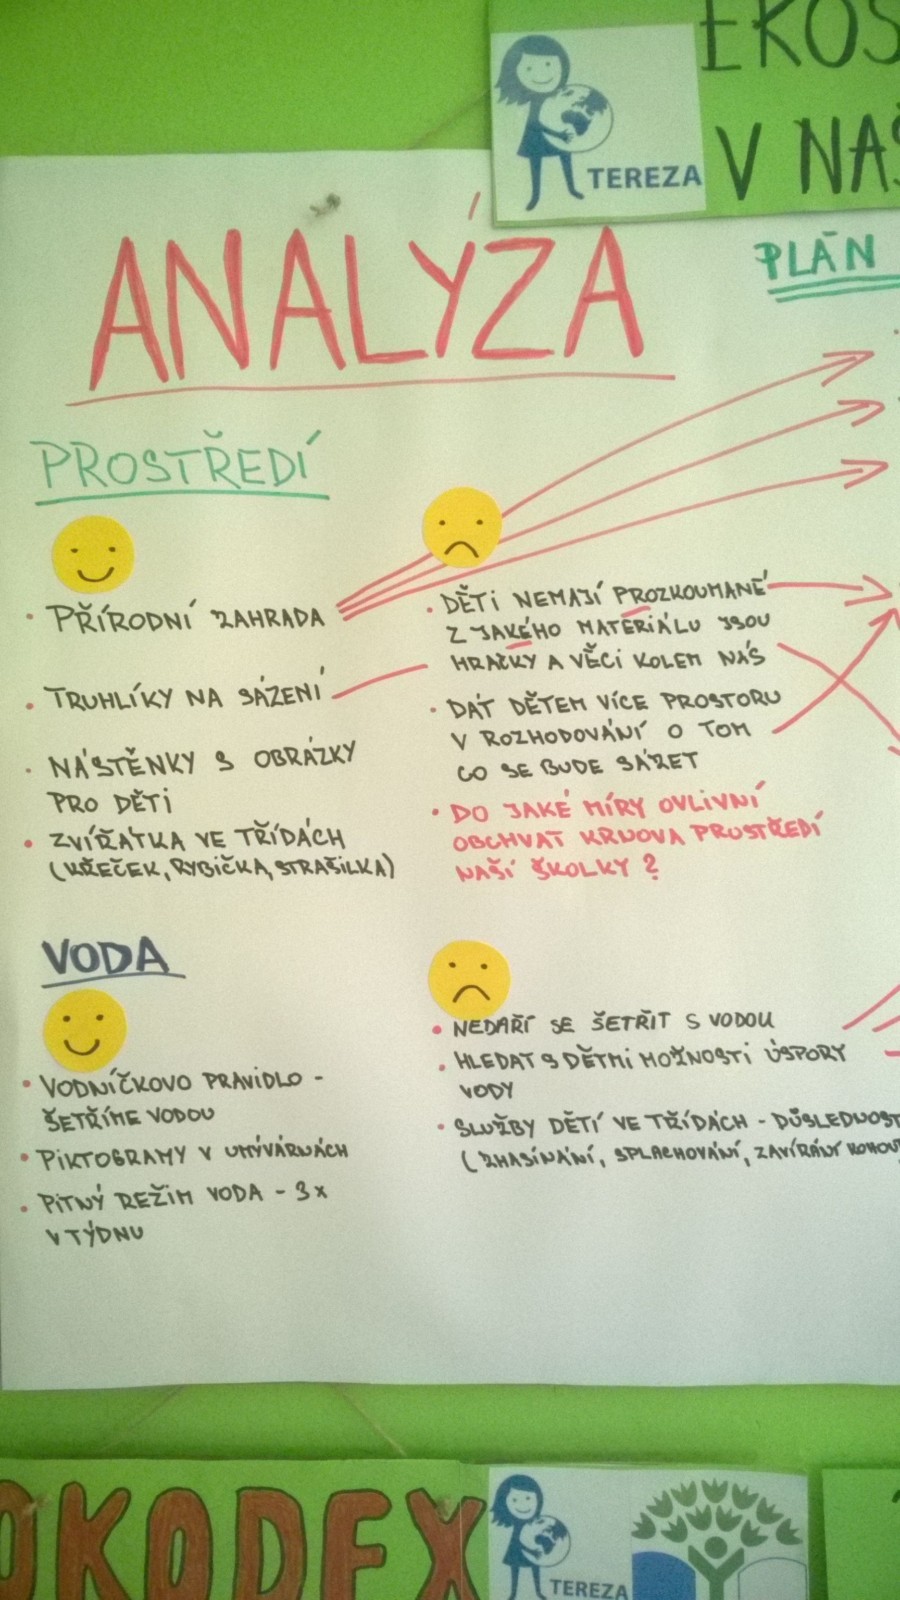 EKOS
V NAŠ
TEREZA
ANALÝZA
PLÁN
PROSTŘEDÍ
• PŘÍRODNÍ ZAHRADA
• TRUHLÍKY NA SÁZENÍ
• NÁSTĚNKY S OBRÁZKY
PRO DĚTI
• ZVÍŘÁTKA VE TŘÍDÁCH
(KŘEČEK, RYBIČKA, STRAŠILKA)
• DĚTI NEMAJÍ PROZKOUMANÉ
Z JAKÉHO MATERIÁLU JSOU
HRAČKY A VĚCI KOLEM NÁS
• DÁT DĚTEM VÍCE PROSTORU
V ROZHODOVÁNÍ O TOM
CO SE BUDE SÁZET
• DO JAKÉ MÍRY OVLIVNÍ
OBCHVAT KRNOVA PROSTŘEDÍ
NAŠÍ ŠKOLKY?
VODA
• VODNÍČKOVO PRAVIDLO -
ŠETŘÍME VODOU
• PIKTOGRAMY V UMÝVÁRNÁCH
• PITNÝ REŽIM VODA - 3x
V TÝDNU
• NEDAŘÍ SE ŠETŘIT S VODOU
• HLEDAT S DĚTMI MOŽNOSTI ÚSPORY
VODY
• SLUŽBY DĚTÍ VE TŘÍDÁCH - DŮSLEDNOST
(ZHASÍNÁNÍ, SPLACHOVÁNÍ, ZAVÍRÁNÍ KOHOU
OKODEX
TEREZA